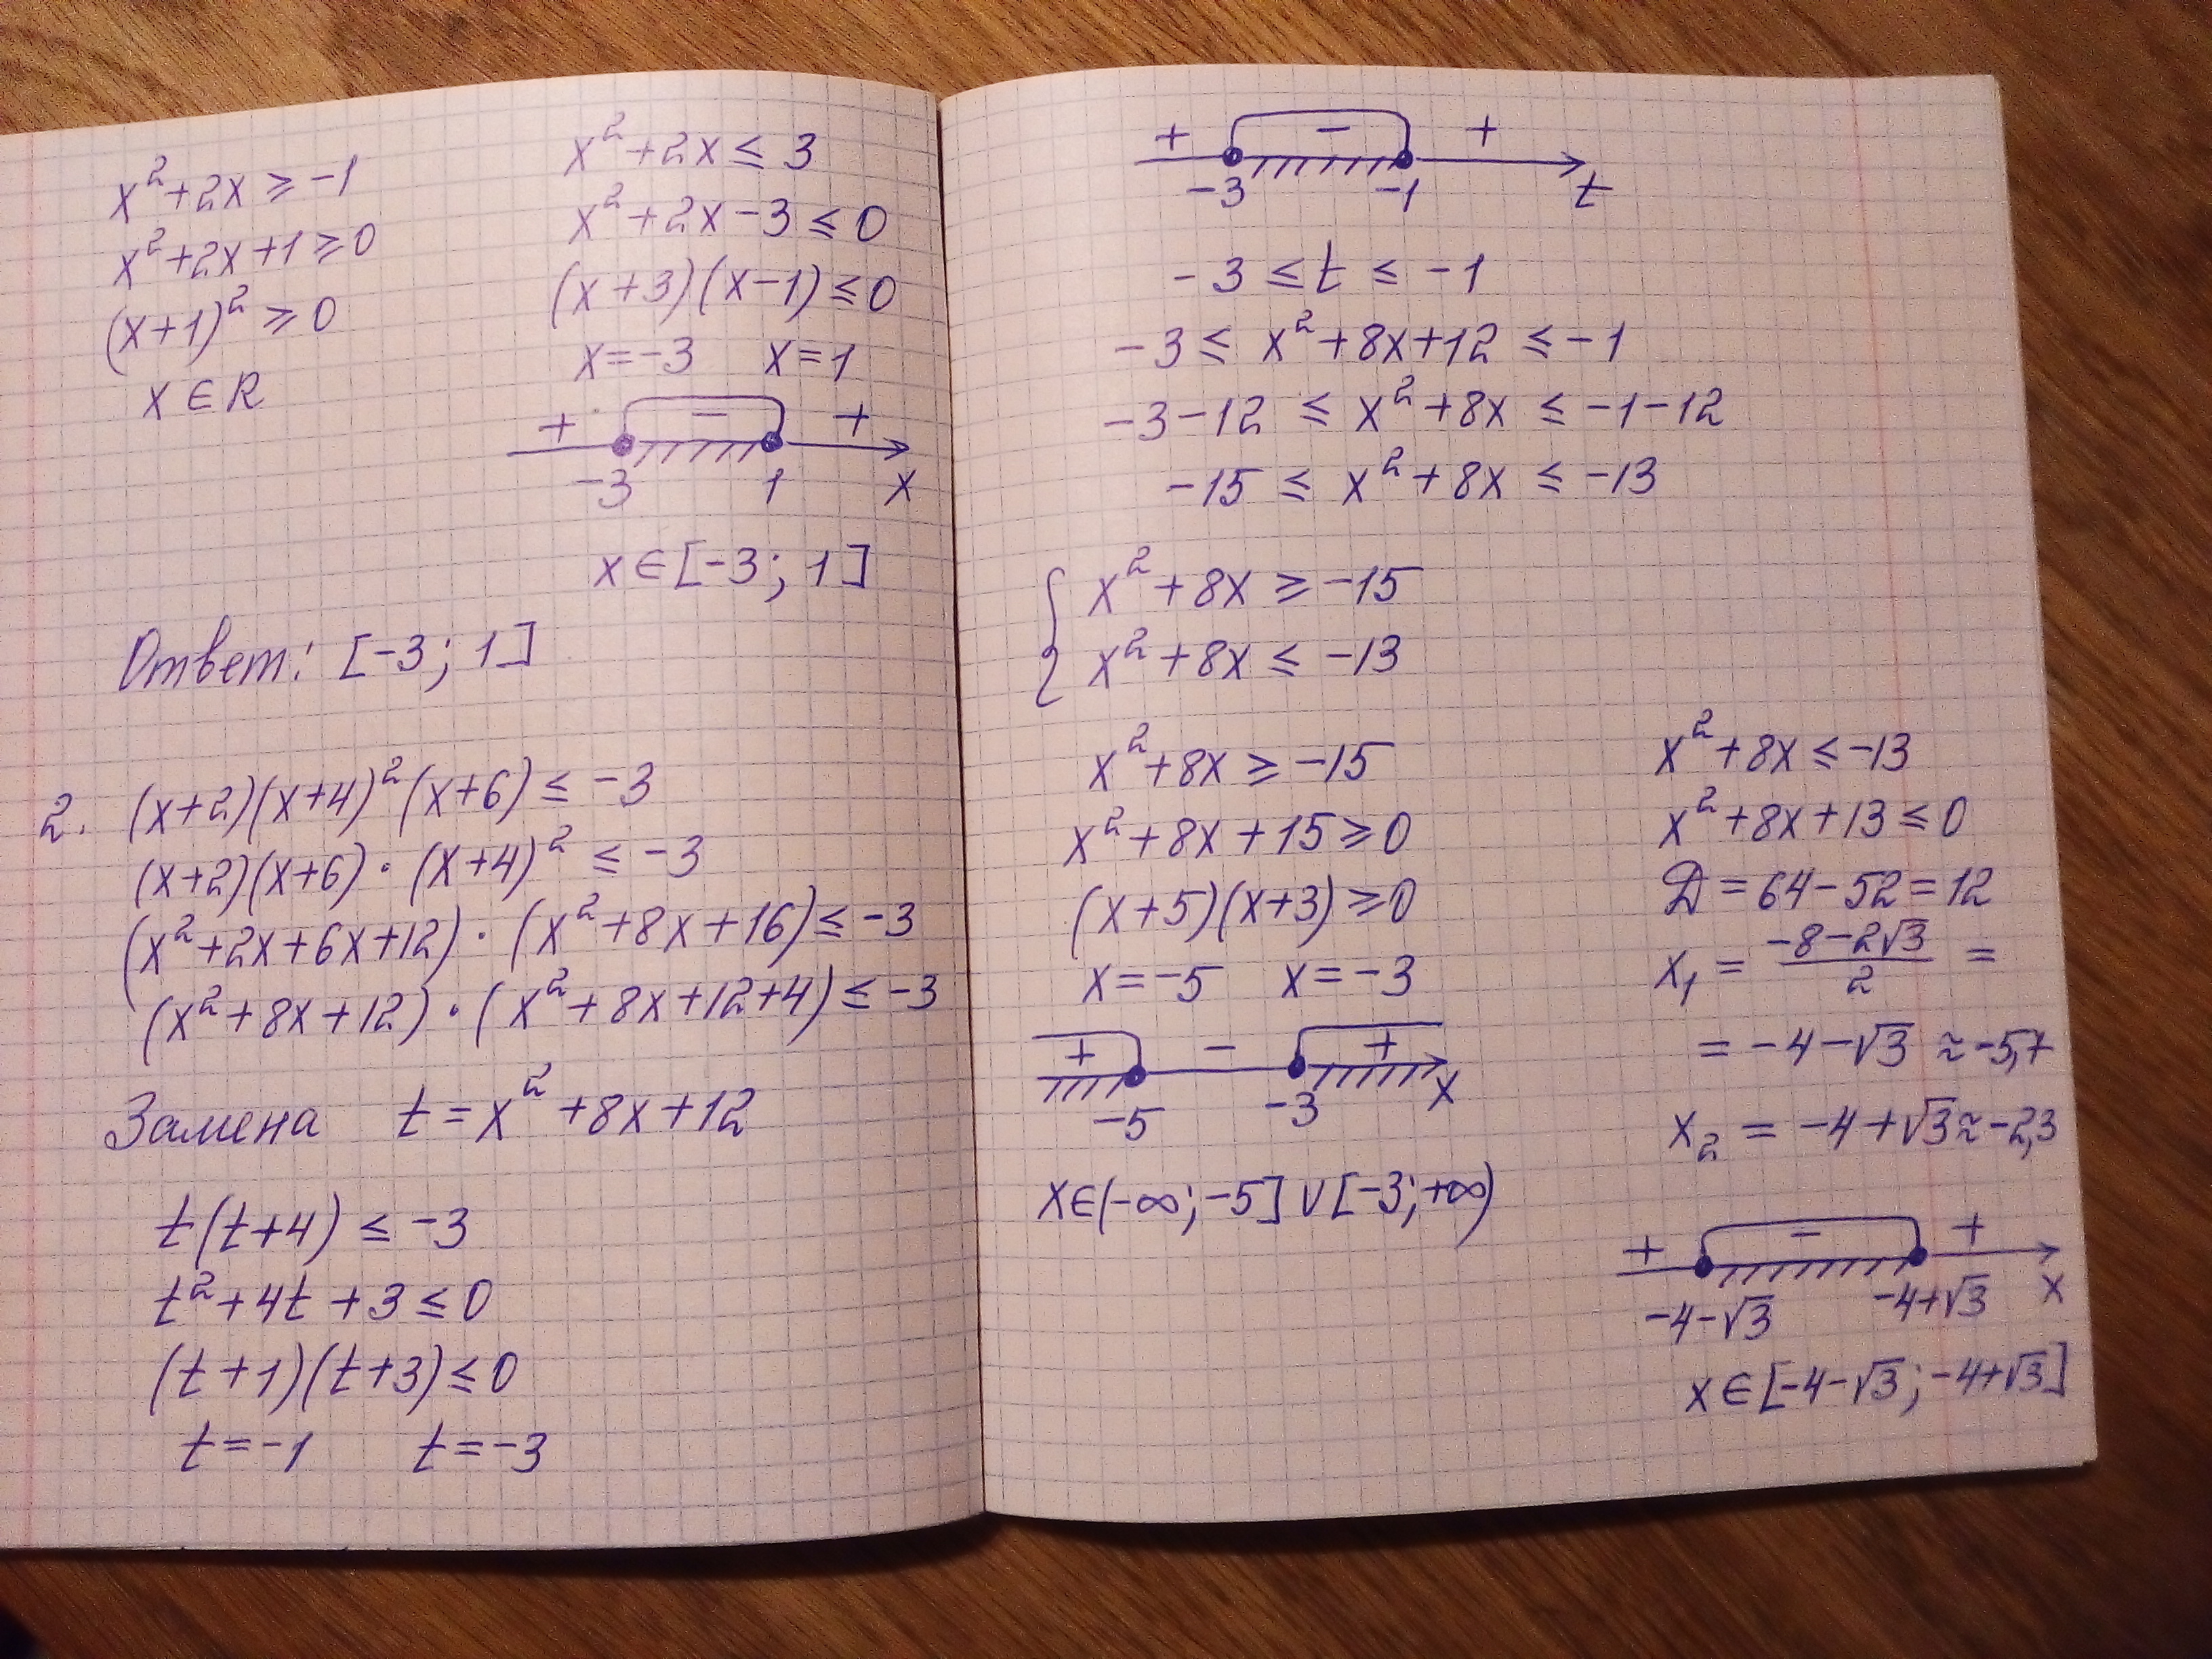 x²+2x ≥ -1
x²+2x+1 ≥ 0
(x+1)² ≥ 0
x ∈ R
x²+2x ≤ 3
x²+2x-3 ≤ 0
(x+3)(x-1) ≤ 0
x=-3 x=1
+ - +
-3 1 x
x ∈ [-3; 1]
Ответ: [-3; 1]
2. (x+2)(x+4)²(x+6) ≤ -3
(x+2)(x+6)·(x+4)² ≤ -3
(x²+2x+6x+12)·(x²+8x+16) ≤ -3
(x²+8x+12)·(x²+8x+12+4) ≤ -3
Замена t=x²+8x+12
t(t+4) ≤ -3
t²+4t+3 ≤ 0
(t+1)(t+3) ≤ 0
t=-1 t=-3
+ - +
-3 -1 t
-3 ≤ t ≤ -1
-3 ≤ x²+8x+12 ≤ -1
-3-12 ≤ x²+8x ≤ -1-12
-15 ≤ x²+8x ≤ -13
{ x²+8x ≥ -15
x²+8x ≤ -13
x²+8x ≥ -15
x²+8x+15 ≥ 0
(x+5)(x+3) ≥ 0
x=-5 x=-3
+ - +
-5 -3 x
x∈(-∞; -5] ∪ [-3; +∞)
x²+8x ≤ -13
x²+8x+13 ≤ 0
D = 64-52 = 12
x₁ = (-8-2√3)/2 =
= -4-√3 ≈ -5,7
x₂ = -4+√3 ≈ -2,3
+ - +
-4-√3 -4+√3 x
x ∈ [-4-√3; -4+√3]